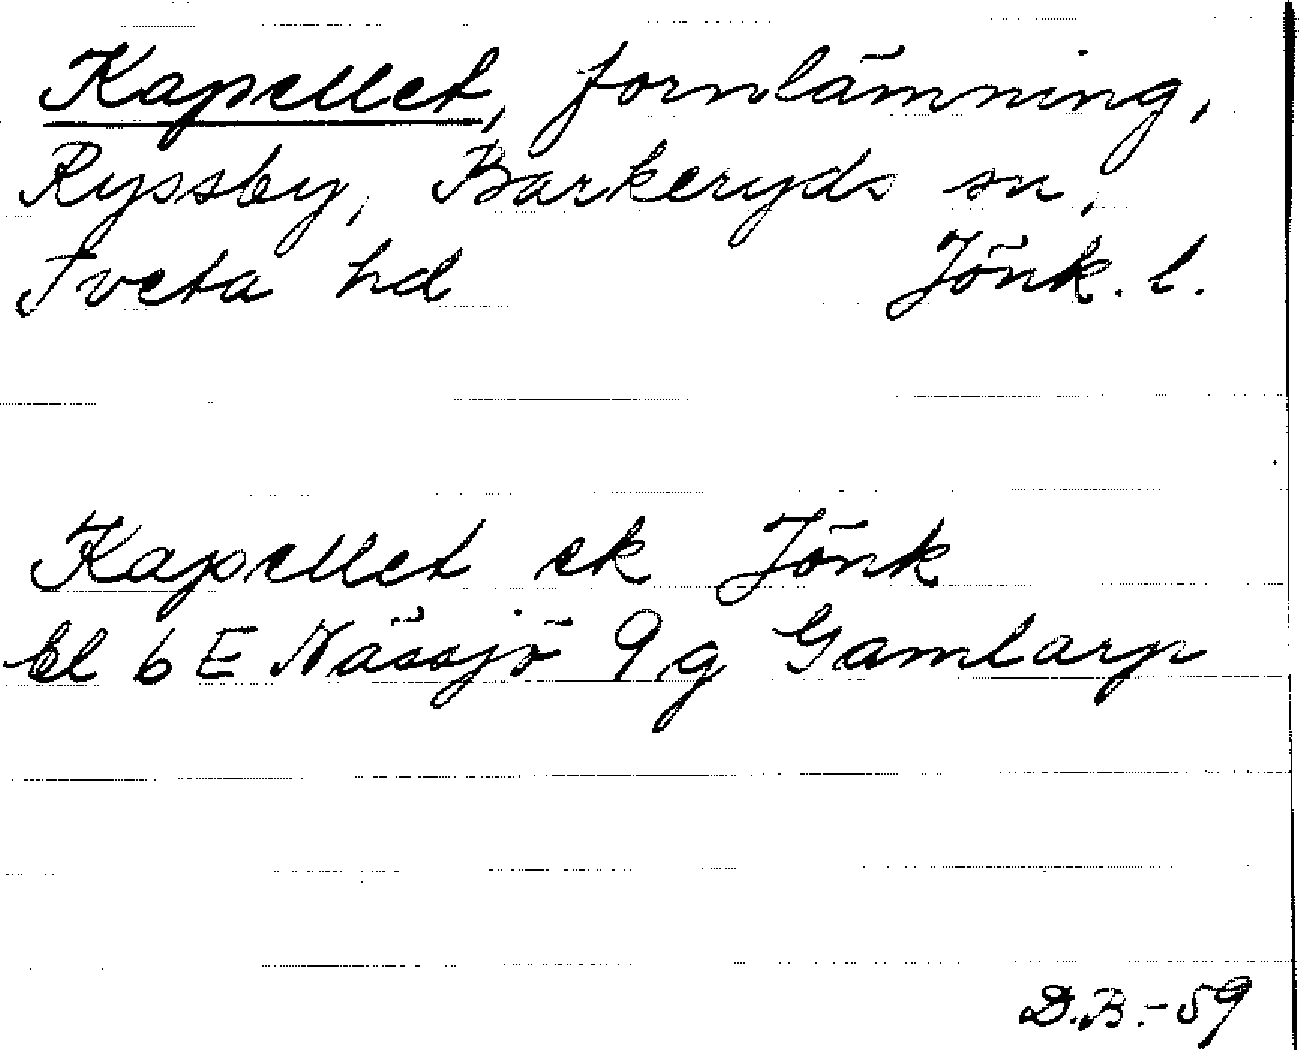 Kapellet, fornlämning,
Ryssby, Barkeryds sn,
Tveta hd Jönk. l.
Kapellet ek Jönk
bl 6 E Nässjö 9 g Gamlarp
D.B.-59